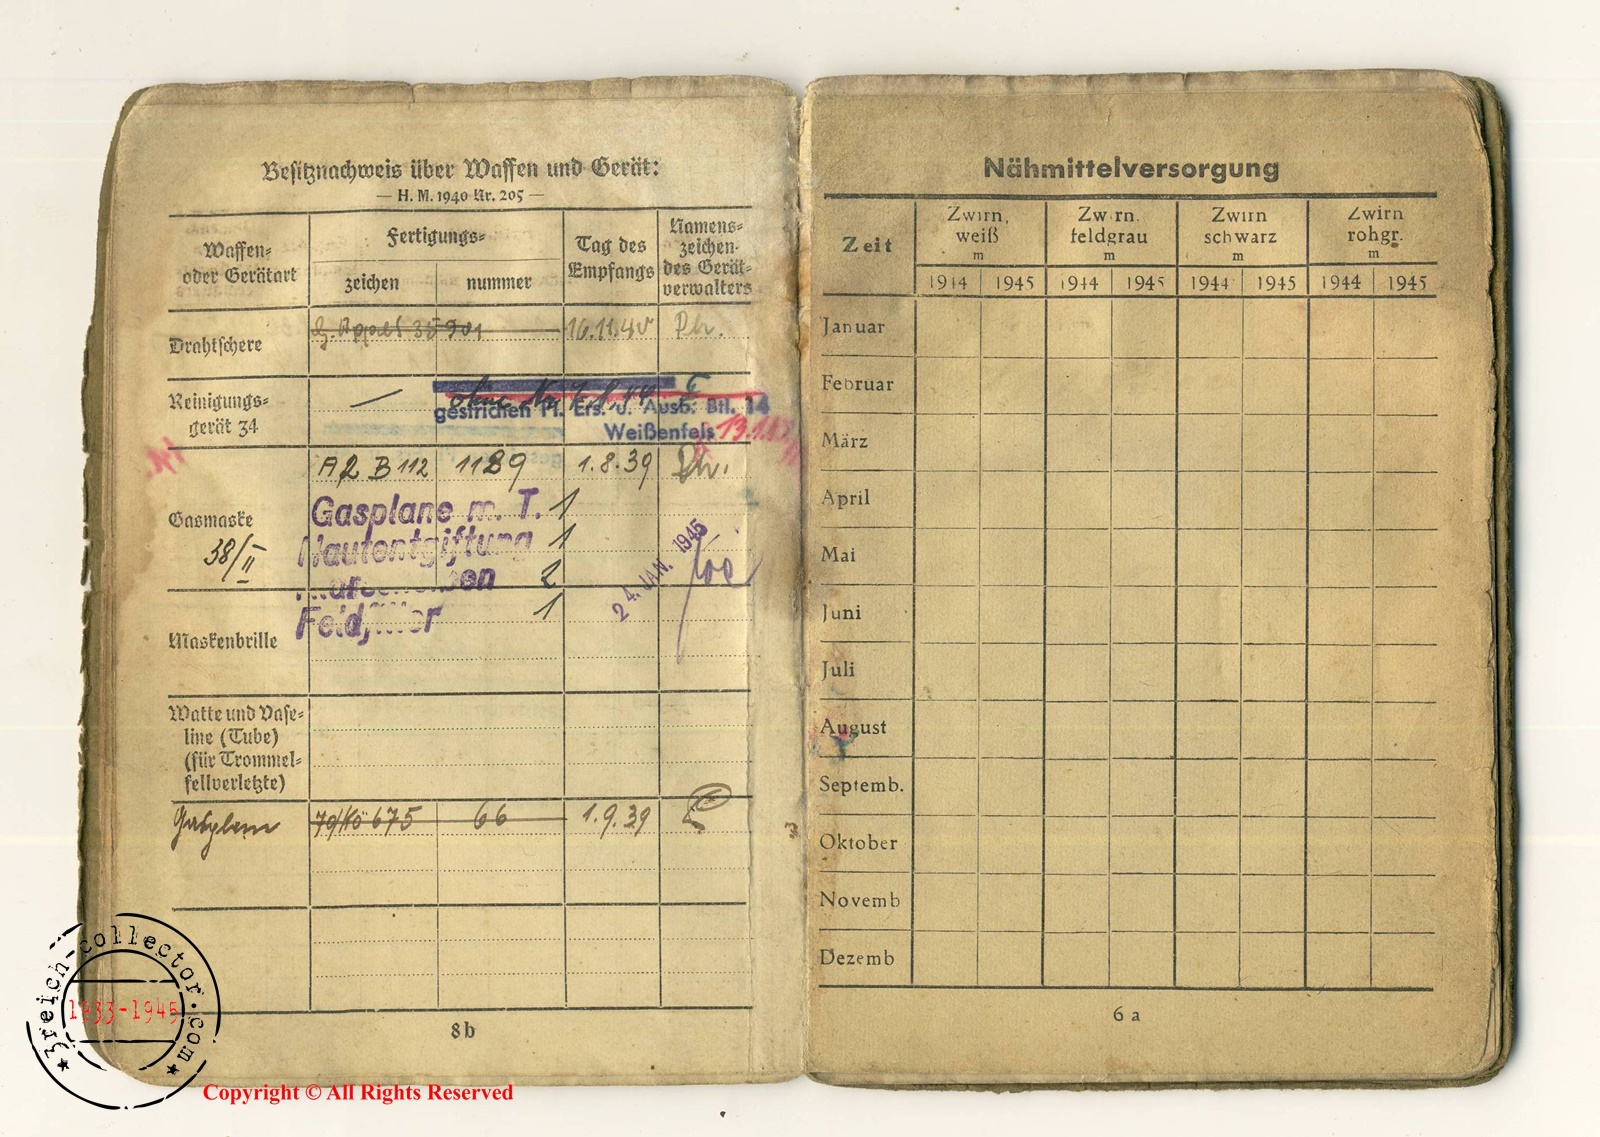 Besitznachweis über Waffen und Gerät:
— H. M. 1940 Nr. 205 —
Waffen-
oder Gerätart
Fertigungs-
zeichen
nummer
Tag des
Empfangs
Namens-
zeichen
des Gerät-
verwalters
Drahtschere
35901
16.11.40
Reinigungs-
gerät 34
—
ohne Nr.
gestrichen Pi. Ers. u. Ausb. Btl. 14
Weißenfels
A2 B 112
1189
1.8.39
Gasmaske
38/II
Gasplane m. T. 1
Hautentgiftung 1
2
1
24. JAN. 1945
Maskenbrille
Watte und Vase-
line (Tube)
(für Trommel-
fellverletzte)
Gasplane
675
66
1.9.39
8b
Nähmittelversorgung
Zeit
Zwirn,
weiß
m
Zwirn,
feldgrau
m
Zwirn
schwarz
m
Zwirn
rohgr.
m
1944 1945 1944 1945 1944 1945 1944 1945
Januar
Februar
März
April
Mai
Juni
Juli
August
Septemb.
Oktober
Novemb
Dezemb
6a
3reich-collector.com
1933-1945
Copyright © All Rights Reserved